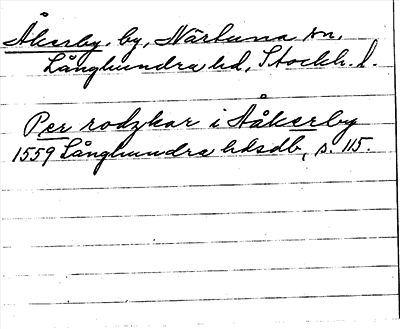 Åkerby, by, Närtuna sn,
Långhundra hd, Stockh. l.
Per rodzkar i Aåkerby
1559 Långhundra hdsdb, s. 115.